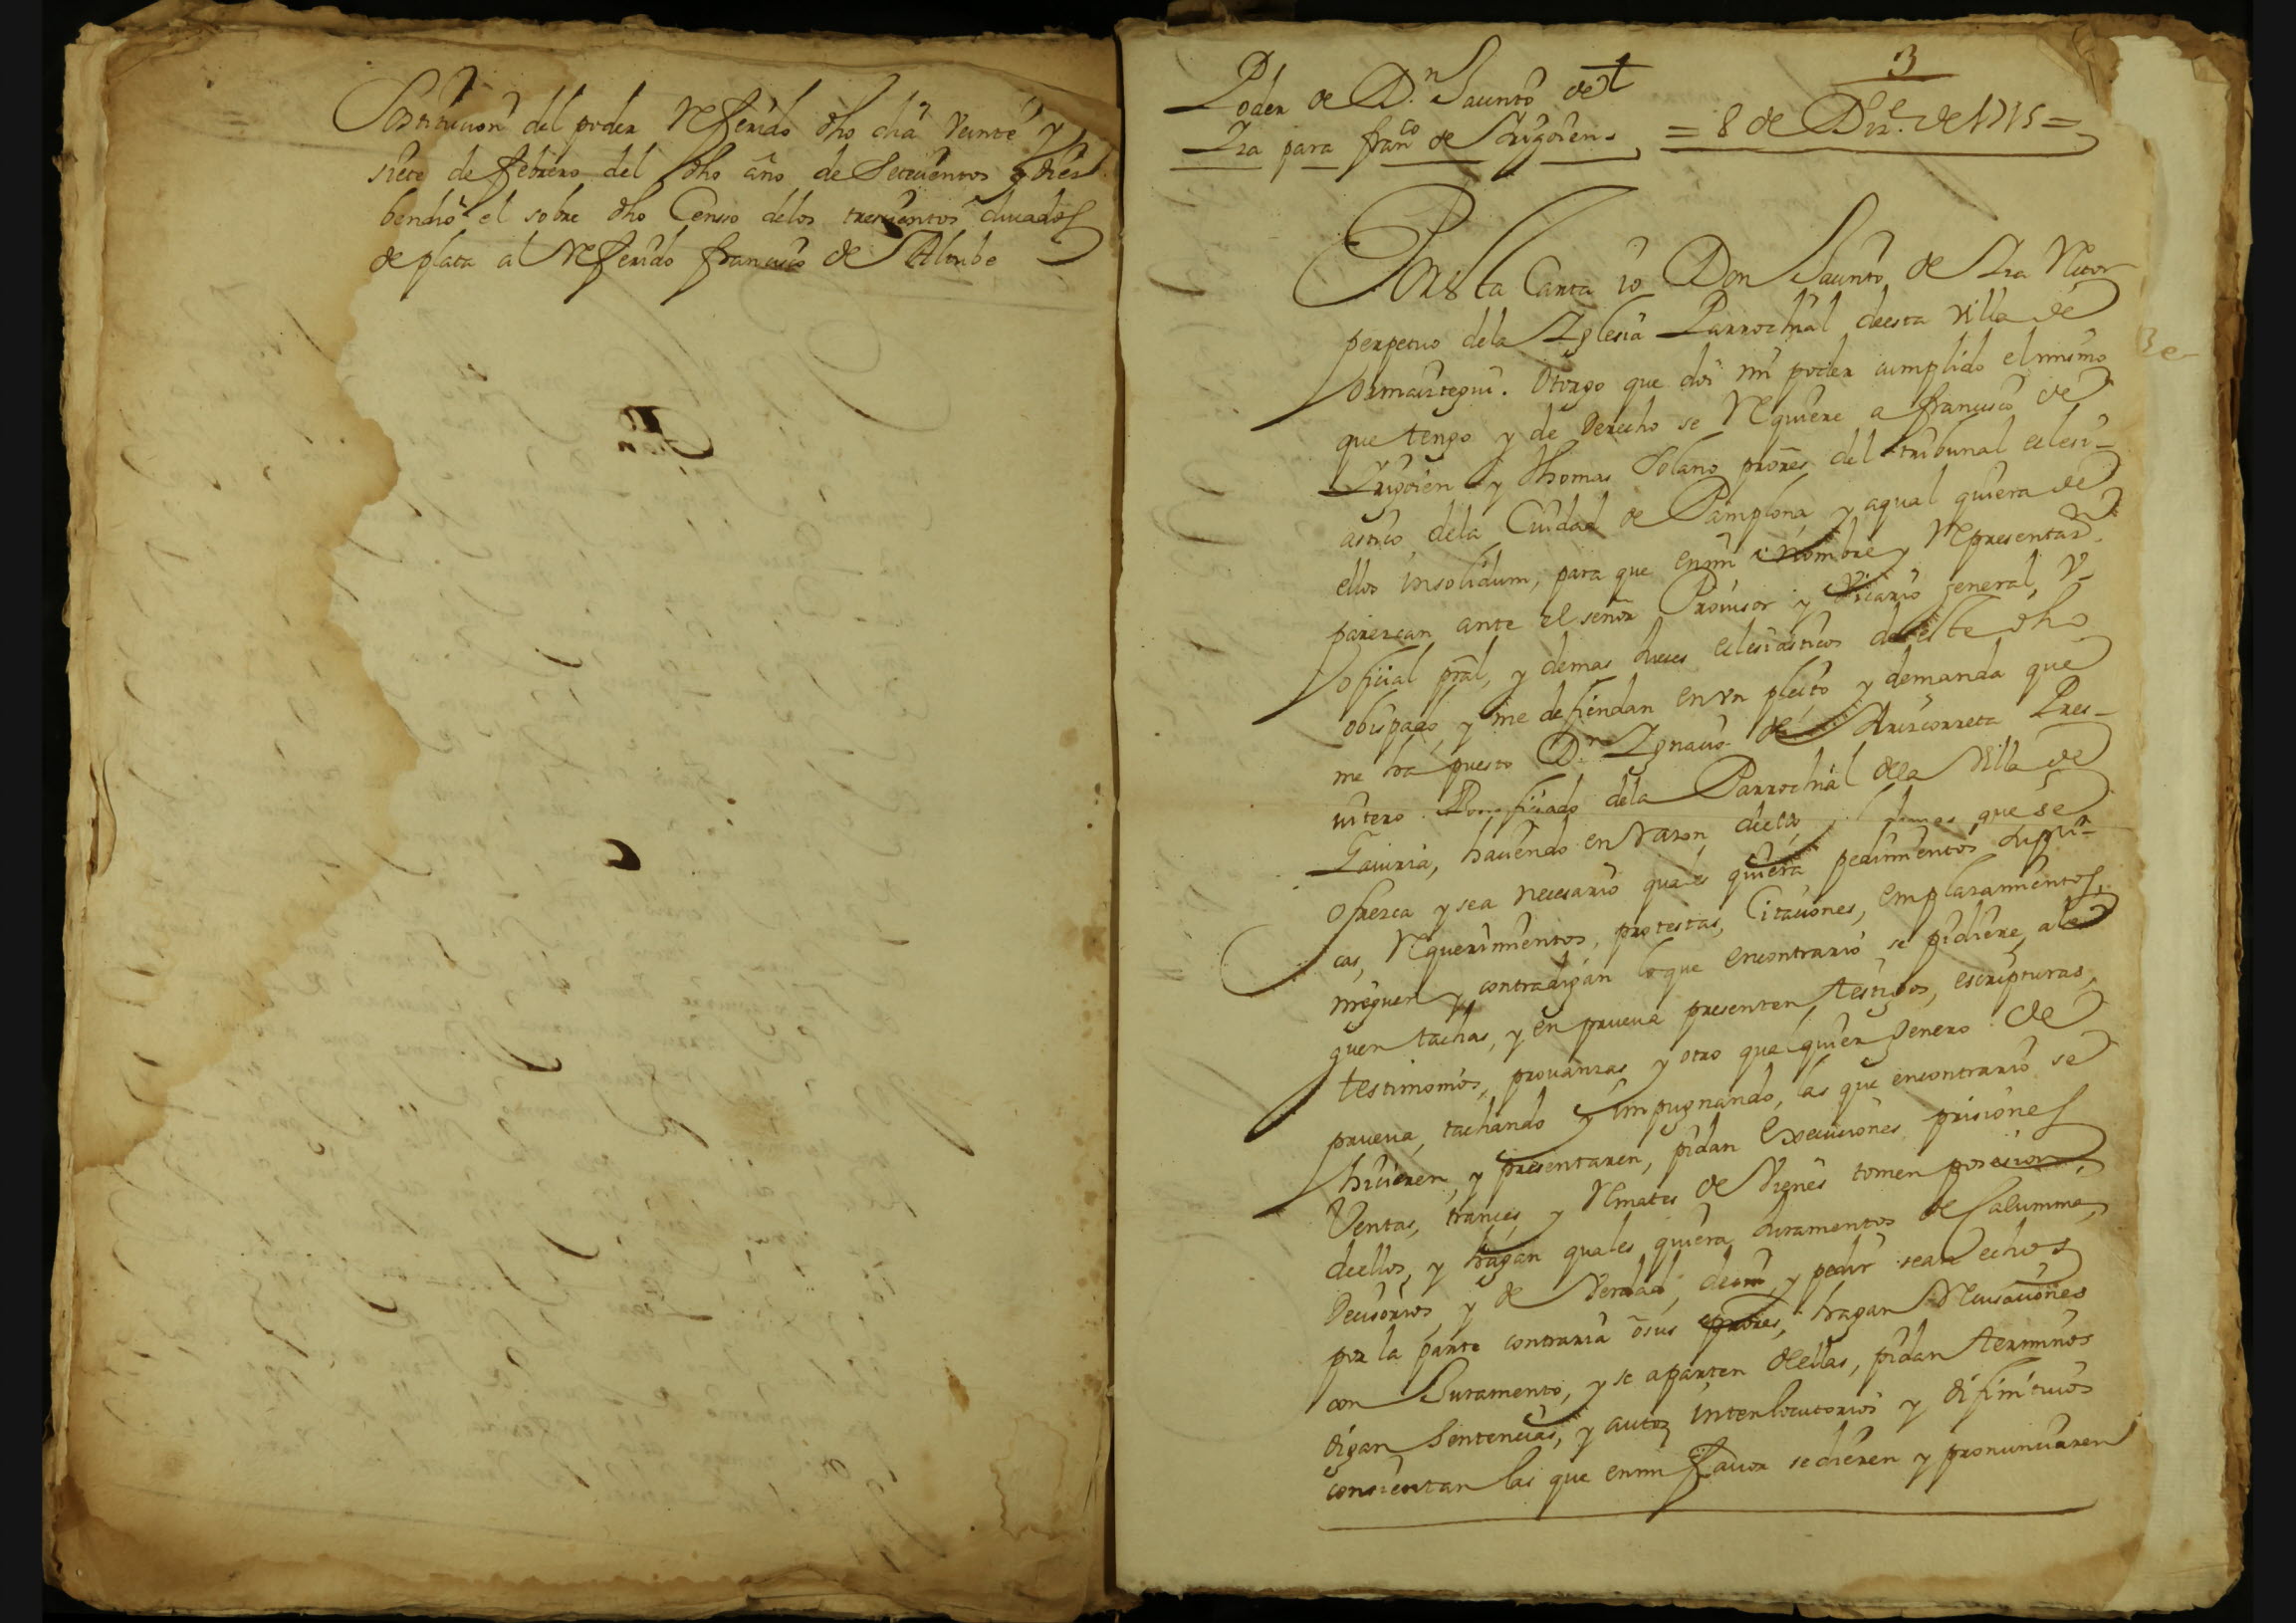 Sostitucion del poder Referido dho dia veinte y
siete de febrero del dho año de Setecientos y dies
bendio el sobre dho Censo delos trescientos ducados
de plata al Referido francisco de
3
Poder de Dn. Jacinto de
Ira para franco de Irigoien
= 8 de Dize. de 1715 =
Por esta Carta io Don Jacinto de Ira Retor
perpetuo dela Iglesia Parrochial deesta villa de
Ormaiztegui. Otorgo que doi mi poder cumplido el mismo
que tengo y de Derecho se Requiere a francisco de
Irigoien y Thomas Solano prores. del tribunal eclesi-
astico dela Ciudad de Pamplona y aqual quiera de
ellos insolidum, para que enmi nombre y Representaon.
parezcan ante el señor Prouisor y Vicario general, v
oficial pral, y demas Jueces eclesiasticos deeste dho
obispado, y me defiendan en vn pleito y demanda que
me ha puesto Dn. Ignacio de Arizcorreta Pres-
uitero Beneficiado dela Parrochial dela villa de
Gauiria, haciendo en Razon deella, que se
ofrezca y sea necesario quales quiera pedimentos, supli-
cas, Requerimientos, protestas, Citaciones, emplazamientos,
nieguen y contradigan loque encontrario se pidiere, ale
guen tachas, y en prueua presenten testigos, escripturas,
testimonios, prouanzas y otro qual quier genero de
prueua, tachando y impugnando, las que encontrario se
hicieren, y presentaren, pidan Execuciones prisiones
Ventas, trances y Remates de Vienes tomen posesion
deellos, y hagan quales quiera Juramentos de Calumnia,
Decisorios, y de Verdad, decir, y pedir sean echos
por la parte contraria o sus prores, hagan Recusaciones
con Juramento, y se aparten dellas, pidan terminos
oigan Sentencias, y autos interlocutorios y difinitiuos
consientan las que enmi fauor se dieren y pronunciaren